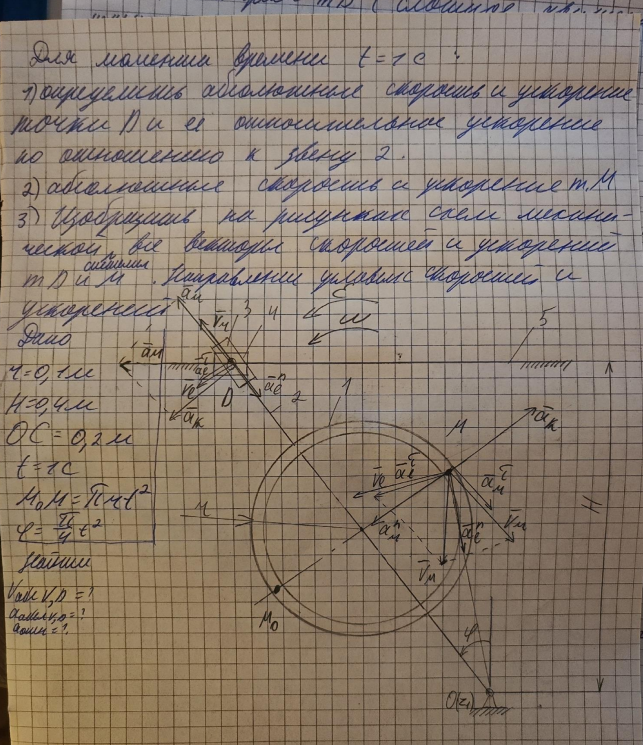 Для момента времени t=1с :
1) определить абсолютные скорость и ускорение
точки D и её относительное ускорение
по отношению к звену 2.
2) абсолютные скорость и ускорение т.М
3) Изобразить на рисунках схем механи-
ческой все векторы скоростей и ускорений
т D и М. Направлении угловых скоростей и
ускорений
Дано
r=0,1м
H=0,4м
OC=0,2м
t=1с
M₀M=πrt²
φ=π/4 t²
Найти
a_M
V_r
3
4
ε
ω
5
a_M
a_e^τ
V_e
a_e^n
D
a_k
2
1
M
a_k
V_e
a_e^τ
a_M^τ
a_M^n
a_e^n
V_M
V_M
H
M₀
φ
O(z₁)